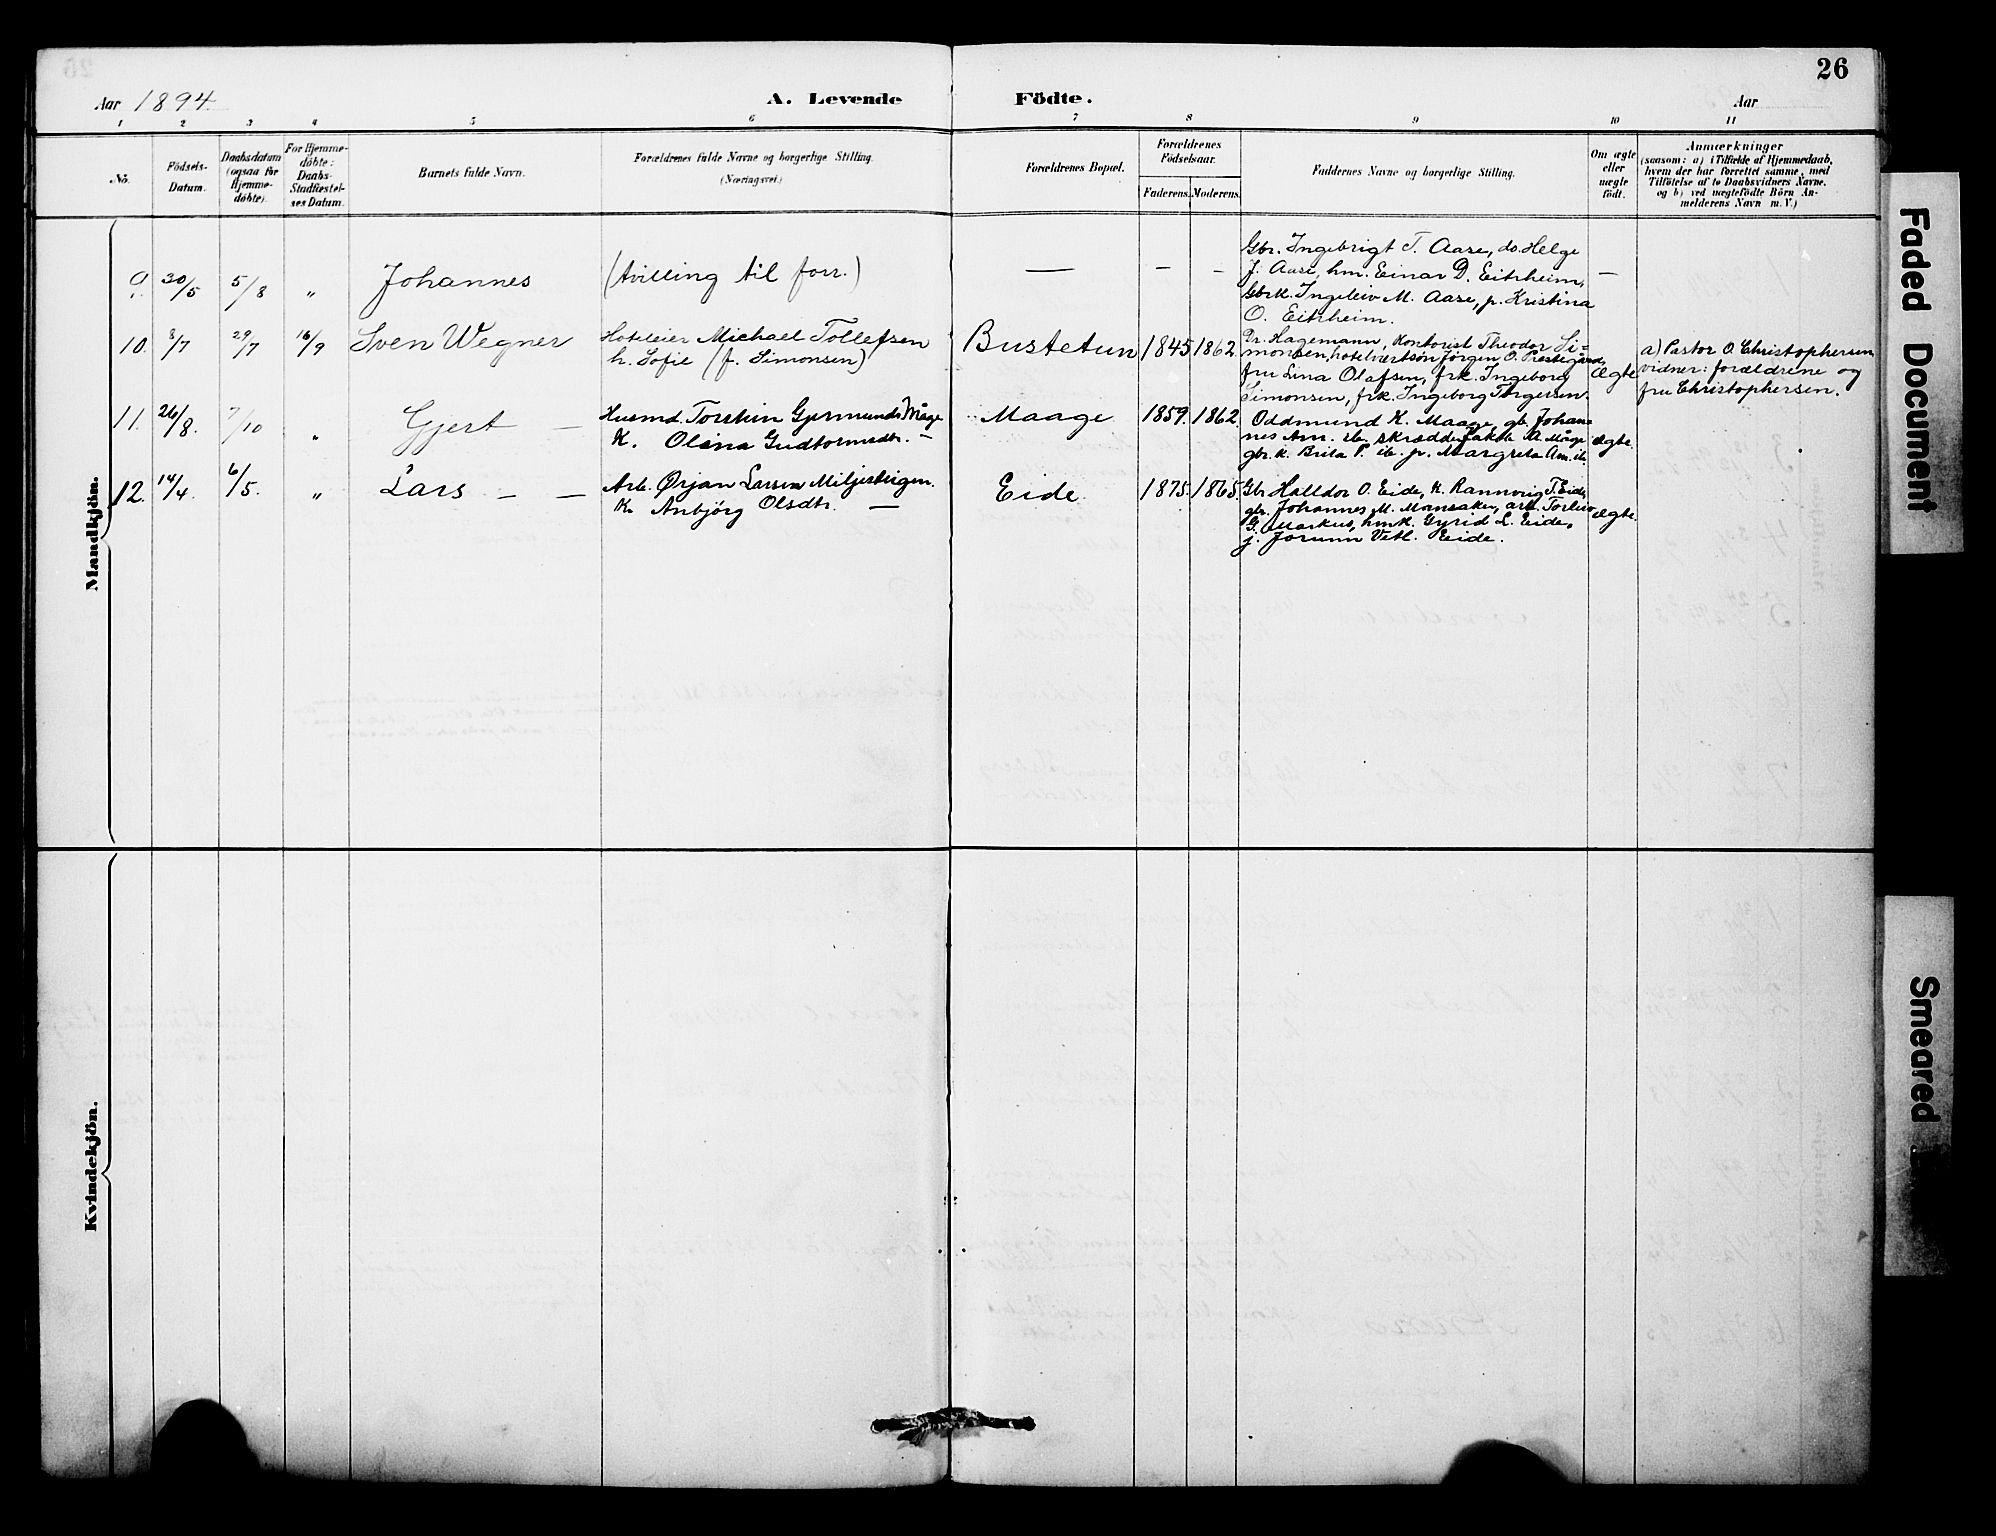 26
Aar 1894.
A. Levende Födte.
Aar
1 2 3 4 5 6 7 8 9 10 11
No.
Födsels-
Datum.
Daabsdatum
(ogsaa for
Hjemme-
döbte).
For Hjemme-
döbte:
Daabs-
Stadfæstel-
ses Datum.
Barnets fulde Navn.
Forældrenes fulde Navne og borgerlige Stilling.
(Næringsvei.)
Forældrenes Bopæl.
Forældrenes
Födselsaar.
Faderens. Moderens.
Faddernes Navne og borgerlige Stilling.
Om ægte
eller
uægte
födt.
Anmærkninger
(saasom: a) i Tilfælde af Hjemmedaab,
hvem der har forrettet samme, med
Tilföielse af to Daabsvidners Navne,
og b) ved uægtefödte Börn An-
melderens Navn m. V.)
Mandkjön.
9. 30/5 5/8 " Johannes (tvilling til forr.) — — — —
Gbr. Ingebrigt T. Aase, do. Helge
J. Aase, hm. Einar D. Eitrheim,
Gbrk. Ingeleiv M. Aase, p. Kristina
O. Eitrheim.
10. 3/7 29/7 16/9 Sven Wegner
Hoteleier Michael Tollefsen
h. Sofie (f. Simonsen)
Bustetun 1845 1862
Dr. Hagemann, Kontorist Theodor Si=
monsen, hotelværtsøn Jørgen O. Præstegård,
fru Lina Olafsen, frk. Ingeborg
Simonsen, frk. Ingeborg Torgersen.
Ægte
a) Pastor O. Christophersen
vidner: forældrene og
fru Christophersen.
11. 26/8. 7/10 " Gjert —
Husmd. Torstein Gjermunds. Måge
K. Olina Gudtormsdtr. —
Maage 1859. 1862
Oddmund K. Maage, gb. Johan=
nes Am. ib. skrædder Jakob A. Måge
gbr. k. Brita P. ib. p. Margreta Am. ib.
ægte.
12. 14/4 6/5. " Lars — —
Arb. Ørjan Larsen Miljesteigen.
K. Anbjørg Olsdtr. —
Eide 1875. 1865.
Gbr. Halldor O. Eide, K. Rannveig T. Eide,
gbr. Johannes M. Mansaker, arb. Torleiv
G. Markus, hmk. Gyrid L. Eide,
j. Jorunn Vetl. Eide.
ægte.
Kvindekjön.
Faded Document
Smeared